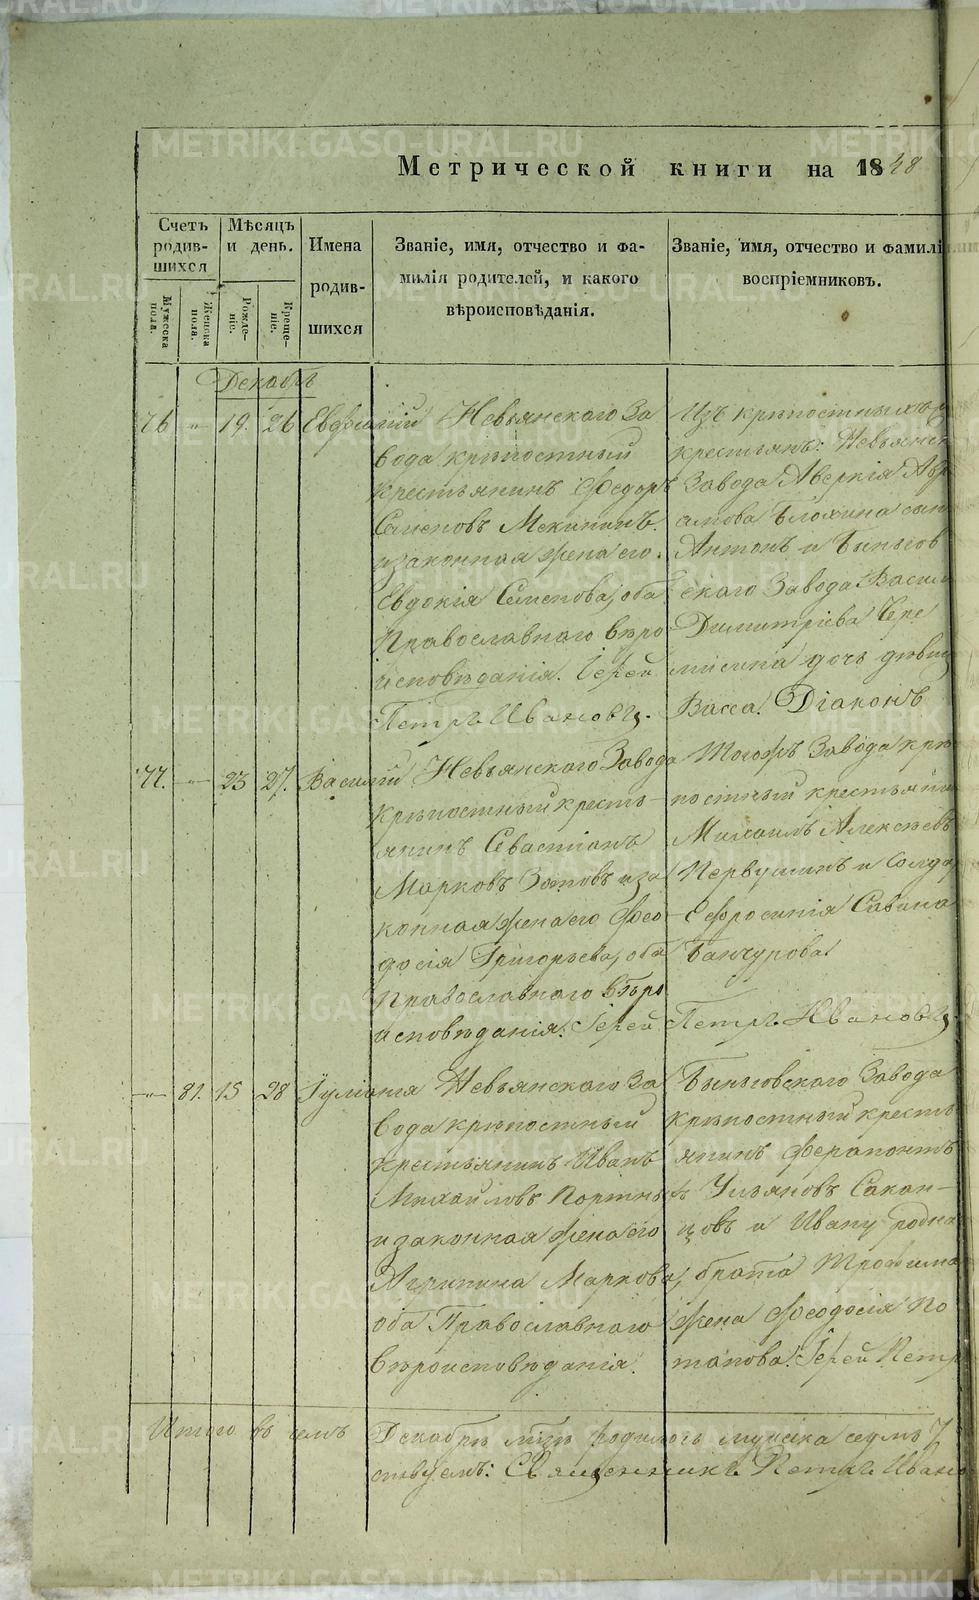 Метрической книги на 1848
Счетъ родив-шихся
Мѣсяцъ и день.
Имена родив-шихся
Званіе, имя, отчество и фа-
милія родителей, и какого
вѣроисповѣданія.
Званіе, имя, отчество и фамилі
воспріемниковъ.
Мужеска пола.
Женска пола.
Рожде-ніе.
Креще-ніе.
Декабрь
76 " 19 26 Евфимій Невьянскаго За
вода крѣпостный
крестьянинъ Федоръ
Семеновъ Мекининъ
и законная жена его
Евдокія Семенова, оба
Православнаго вѣро
исповѣданія. Іерей
Петръ Ивановъ.
Изъ крѣпостныхъ
крестьянъ: Невьянск
Завода Аверкія Авр
амова Блохина сын
Антонъ и Быньгов
скаго Завода Васил
Димитріева Чере
мисина дочь дѣвиц
Васса. Діаконъ
77. " 23 27. Василій Невьянскаго Завода
крѣпостный кресть-
янинъ Севастіанъ
Марковъ Зотовъ и за
конная жена его Фео
досія Григорьева, оба
Православнаго вѣро
исповѣданія. Іерей Петръ Ивановъ.
Тогожъ Завода крѣ
постный крестьянин
Михаилъ Алексѣевъ
Первушинъ и Солда
Ефросинія Савина
Банчурова.
" 81. 15 28 Іуліанія Невьянскаго За
вода крѣпостный
крестьянинъ Иванъ
Михайловъ Портных
и законная жена его
Агрипина Маркова,
оба Православнаго
вѣроисповѣданія.
Быньговскаго Завода
крѣпостный кресть
янинъ Ферапонтъ
Ульяновъ Сакан-
цовъ и Ивану родна
брата Трофима
жена Феодосія По
тапова. Іерей Петр
Итого въ семъ Декабрѣ мцѣ родилось мужска седмь 7
Священникъ Петръ Ивано
METRIKI.GASO-URAL.RU